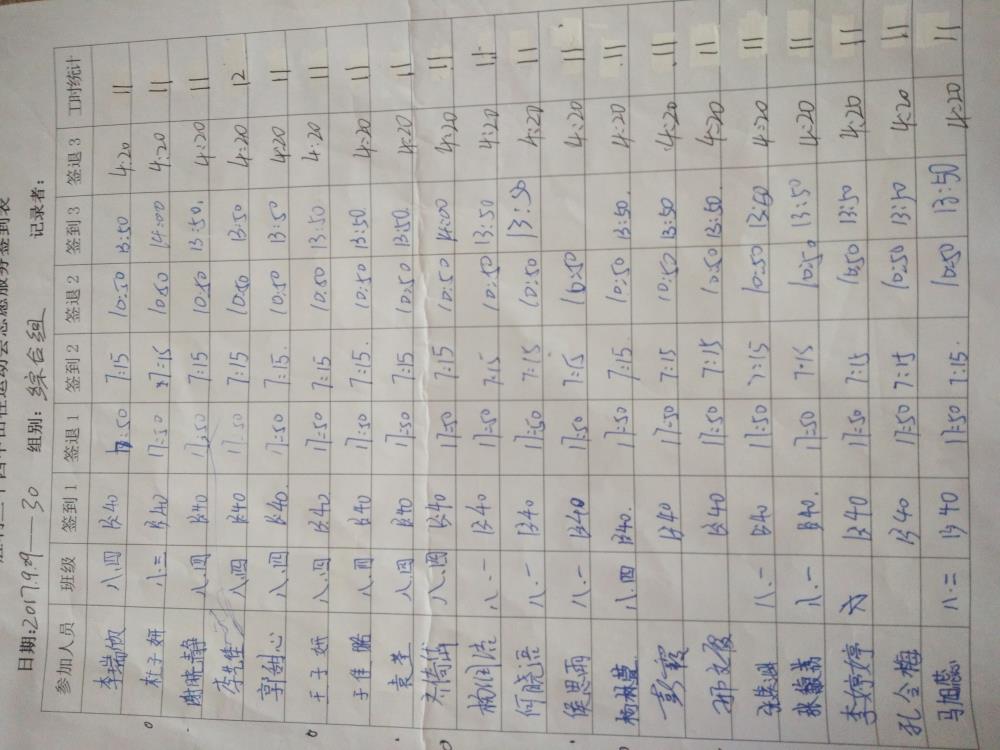 日期:2017.9.29—30 组别: 综合组 记录者:
参加人员 班级 签到1 签退1 签到2 签退2 签到3 签退3 工时统计
八.四 13:40 17:50 7:15 10:50 13:50 4:20 11
八.三 13:40 17:50 7:15 10:50 14:00 4:20 11
谢晓静 八.四 13:40 17:50 7:15 10:50 13:50. 4:20 11
八.四 13:40 17:50 7:15 10:50 13:50 4:20 12
郭甜心 八.四 13:40. 17:50 7:15. 10:50 13:50 4:20 11
于子妍 八.四 13:40 17:50 7:15 10:50 13:50 4:20 11
于佳 八.四 13:40 17:50 7:15. 10:50 13:50. 4:20 11
八.四 13:40 17:50 7:15 10:50 13:50. 4:20 11
八.四 13:40 17:50 7:15 10:50 14:00 4:20 11
杨润浩 八.一 13:40 17:50 7:15 10:50 13:50 4:20 11
何晓语 八.一 13:40 17:50 7:15 10:50 13:50 4:20 11
侯思雨 八.一 13:40 17:50 7:15 10:50 4:20 11
杨林萱 八.四 13:40. 17:50 7:15. 10:50 13:50. 4:20 11
彭雯 13:40 17:50 7:15 10:50 13:50 4:20 11
邢 13:40 17:50 7:15 10:50 13:50. 4:20 11
八.一 13:40 17:50 7:15 10:50 13:50 4:20 11
八.一 13:40. 17:50 7:15 10:50 13:50 4:20 11
李婷婷 13:40 17:50 7:15 10:50 13:50 4:20 11
孔令梅 13:40 17:50 7:15 10:50 13:50 4:20 11
马旭蕊 八.二 13:40 17:50 7:15. 10:50 13:50 4:20 11